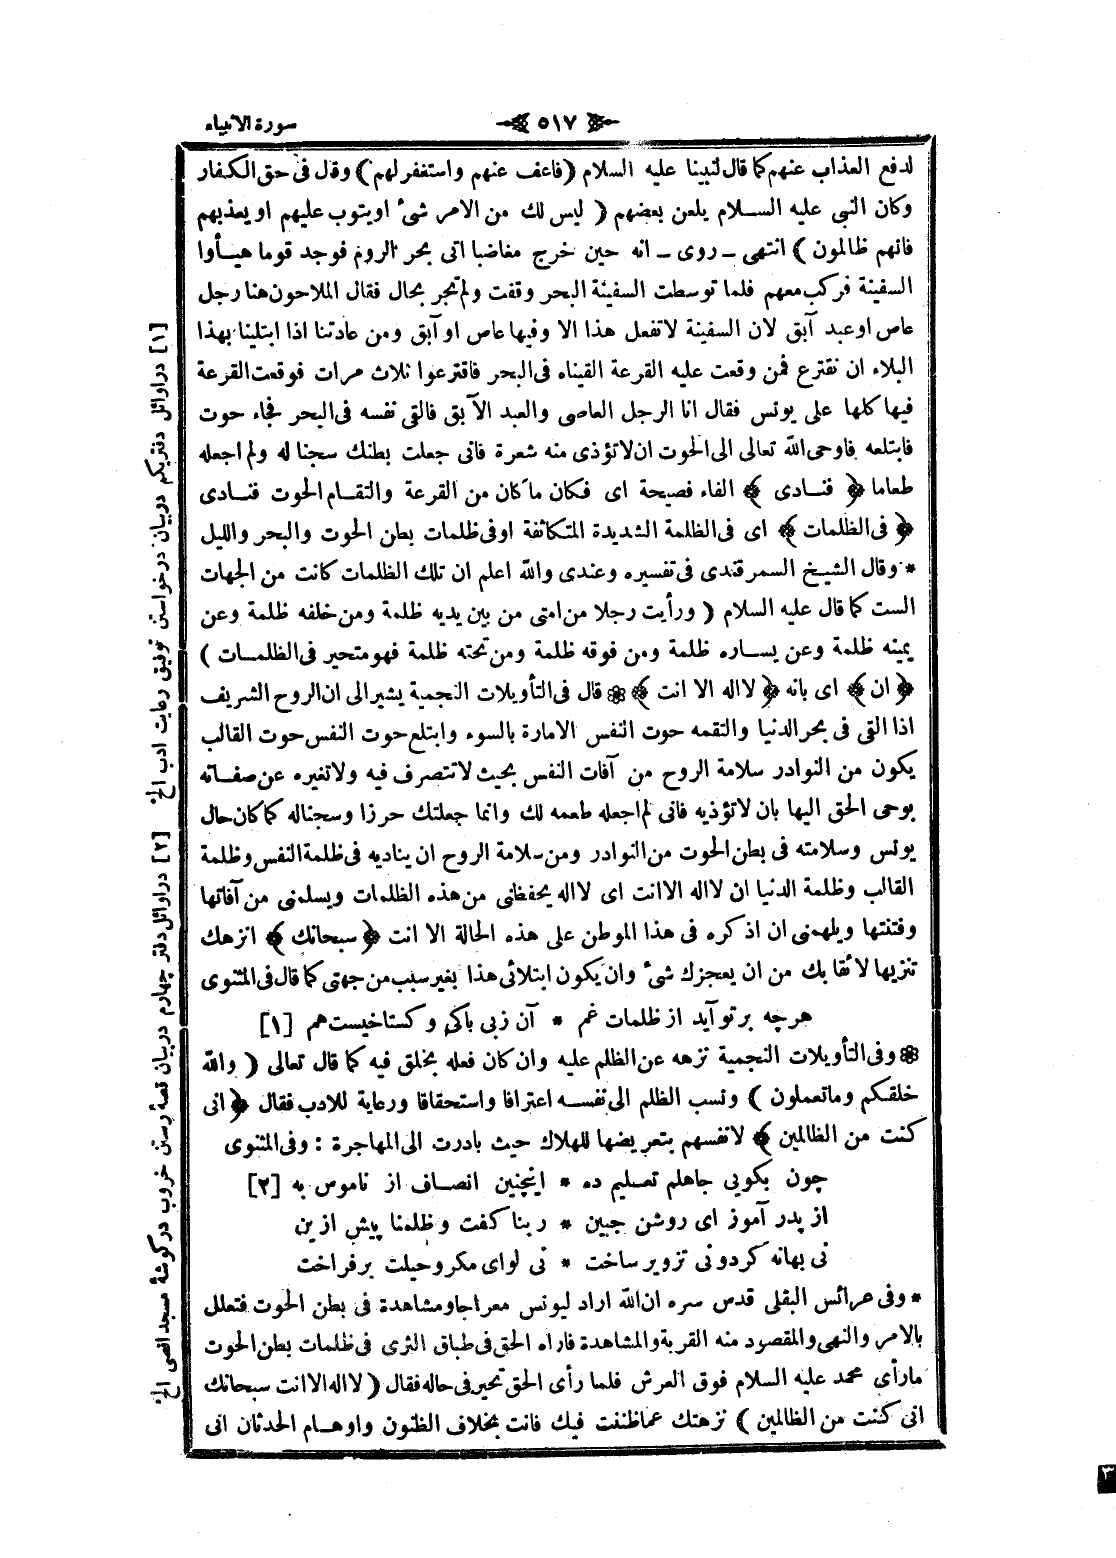 سورة الانبياء
٥١٧
لدفع العذاب عنهم كما قال لنبينا عليه السلام (فاعف عنهم واستغفر لهم) وقال فى حق الكفار
وكان النبى عليه السلام يلعن بعضهم (ليس لك من الامر شئ اويتوب عليهم اويعذبهم
فانهم ظالمون) انتهى ـ روى ـ انه حين خرج مغاضبا اتى بحر الروم فوجد قوما هيأوا
السفينة فركب معهم فلما توسطت السفينة البحر وقفت ولم تجر بحال فقال الملاحون هنا رجل
عاص اوعبد آبق لان السفينة لاتفعل هذا الا وفيها عاص او آبق ومن عادتنا اذا ابتلينا بهذا
البلاء ان نقترع فمن وقعت عليه القرعة القيناه فى البحر فاقترعوا ثلاث مرات فوقعت القرعة
فيها كلها على يونس فقال انا الرجل العاصى والعبد الآبق فالقى نفسه فى البحر فجاء حوت
فابتلعه فاوحى الله تعالى الى الحوت ان لاتؤذى منه شعرة فانى جعلت بطنك سجنا له ولم اجعله
طعاما ﴿ فنادى ﴾ الفاء فصيحة اى فكان ماكان من القرعة والتقام الحوت فنادى
﴿ فى الظلمات ﴾ اى فى الظلمة الشديدة المتكاثفة اوفى ظلمات بطن الحوت والبحر والليل
* وقال الشيخ السمرقندى فى تفسيره وعندى والله اعلم ان تلك الظلمات كانت من الجهات
الست كما قال عليه السلام ( ورأيت رجلا من امتى من بين يديه ظلمة ومن خلفه ظلمة وعن
يمينه ظلمة وعن يساره ظلمة ومن فوقه ظلمة ومن تحته ظلمة فهو متحير فى الظلمات )
﴿ ان ﴾ اى بانه ﴿ لااله الا انت ﴾ ❁ قال فى التأويلات النجمية يشير الى ان الروح الشريف
اذا القى فى بحر الدنيا والتقمه حوت النفس الامارة بالسوء وابتلع حوت النفس حوت القالب
يكون من النوادر سلامة الروح من آفات النفس بحيث لاتتصرف فيه ولاتغيره عن صفاته
يوحى الحق اليها بان لاتؤذيه فانى لم اجعله طعمه لك وانما جعلتك حرزا وسجناله كما كان حال
يونس وسلامته فى بطن الحوت من النوادر ومن سلامة الروح ان يناديه فى ظلمة النفس وظلمة
القالب وظلمة الدنيا ان لااله الاانت اى لااله يحفظنى من هذه الظلمات ويسلمنى من آفاتها
وفتنتها ويلهمنى ان اذكره فى هذا الموطن على هذه الحالة الا انت ﴿ سبحانك ﴾ انزهك
تنزيها لائقا بك من ان يعجزك شئ وان يكون ابتلائى هذا بغير سبب من جهتى كما قال فى المثنوى
هرچه بر تو آيد از ظلمات غم * آن زبى باكى وكستاخيست هم [١]
❁ وفى التأويلات النجمية نزهه عن الظلم عليه وان كان فعله بخلق فيه كما قال تعالى ( والله
خلقكم وماتعملون ) ونسب الظلم الى نفسه اعترافا واستحقاقا ورعاية للادب فقال ﴿ انى
كنت من الظالمين ﴾ لانفسهم بتعريضها للهلاك حيث بادرت الى المهاجرة : وفى المثنوى
چون بكويى جاهلم تعليم ده * اينچنين انصاف از ناموس به [٢]
از پدر آموز اى روشن جبين * ربنا كفت وظلمنا پيش ازين
نى بهانه كرد ونى تزوير ساخت * نى لواى مكر وحيلت برفراخت
* وفى عرائس البقلى قدس سره ان الله اراد ليونس معراجا ومشاهدة فى بطن الحوت فتعلل
بالامر والنهى والمقصود منه القربة والمشاهدة فاراه الحق فى طباق الثرى فى ظلمات بطن الحوت
مارأى محمد عليه السلام فوق العرش فلما رأى الحق تحير فى حاله فقال ( لااله الاانت سبحانك
انى كنت من الظالمين ) نزهتك عماظننت فيك فانت بخلاف الظنون واوهام الحدثان انى
[١] در اوائل دفتر يكم در بيان درخواستن توفيق رعايت ادب الخ
[٢] در اوائل دفتر چهارم در بيان قصۀ رستن خروب در كوشۀ مسجد اقصى الخ
٣